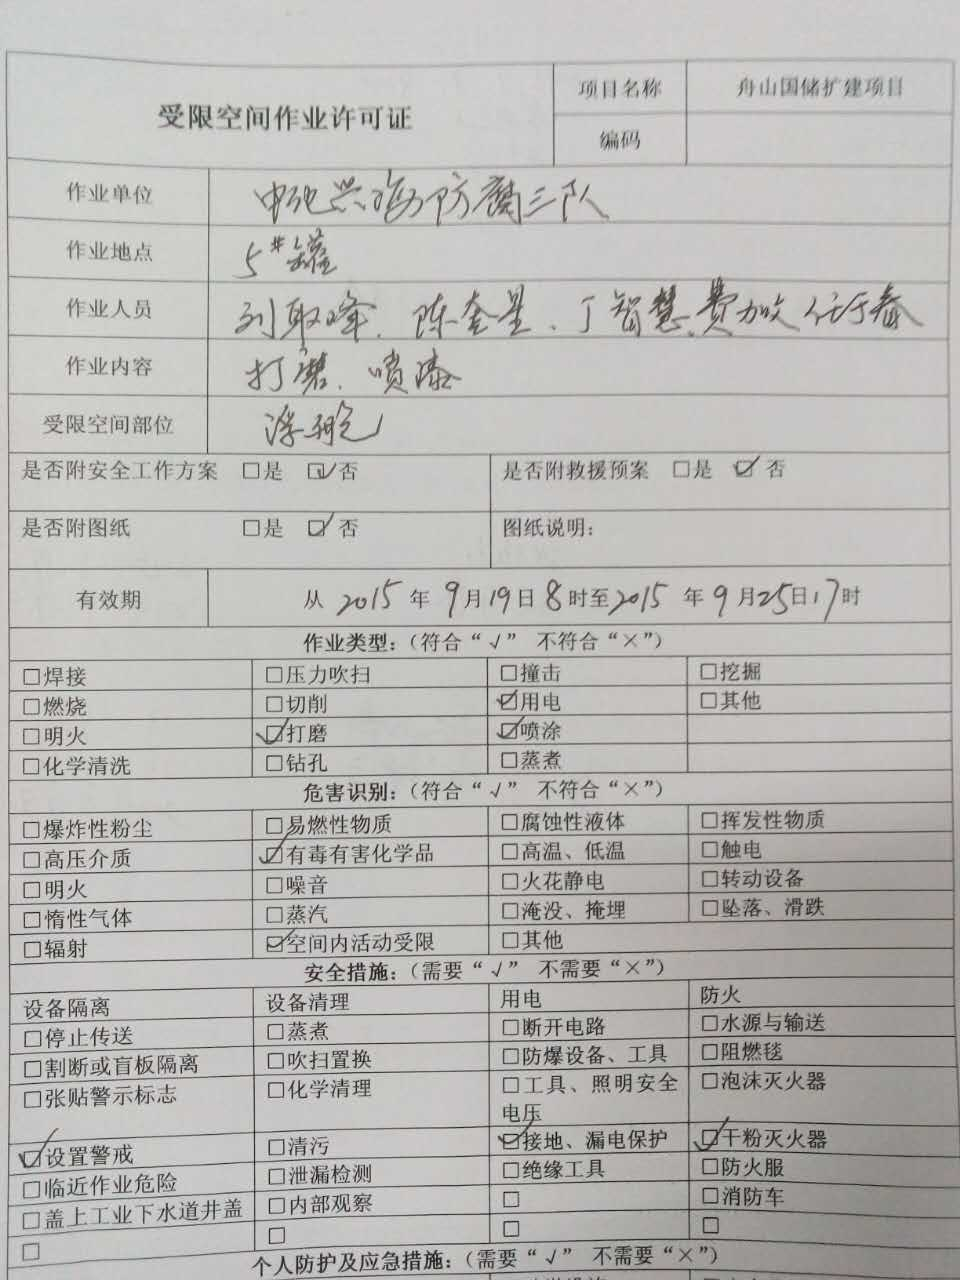 受限空间作业许可证 项目名称 舟山国储扩建项目
编码
作业单位 中地兴海防腐三队
作业地点 5#罐
作业人员 刘取峰、陈奎星、丁智慧、费加
作业内容 打磨、喷漆
受限空间部位 浮舱
是否附安全工作方案 □是 ☑否 是否附救援预案 □是 ☑否
是否附图纸 □是 ☑否 图纸说明：
有效期 从2015年9月19日8时至2015年9月25日17时
作业类型：（符合“√” 不符合“×”）
□焊接 □压力吹扫 □撞击 □挖掘
□燃烧 □切削 ☑用电 □其他
□明火 ☑打磨 ☑喷涂
□化学清洗 □钻孔 □蒸煮
危害识别：（符合“√” 不符合“×”）
□爆炸性粉尘 □易燃性物质 □腐蚀性液体 □挥发性物质
□高压介质 ☑有毒有害化学品 □高温、低温 □触电
□明火 □噪音 □火花静电 □转动设备
□惰性气体 □蒸汽 □淹没、掩埋 □坠落、滑跌
□辐射 ☑空间内活动受限 □其他
安全措施：（需要“√” 不需要“×”）
设备隔离 设备清理 用电 防火
□停止传送 □蒸煮 □断开电路 □水源与输送
□割断或盲板隔离 □吹扫置换 □防爆设备、工具 □阻燃毯
□张贴警示标志 □化学清理 □工具、照明安全 □泡沫灭火器
电压
☑设置警戒 □清污 ☑接地、漏电保护 ☑干粉灭火器
□临近作业危险 □泄漏检测 □绝缘工具 □防火服
□盖上工业下水道井盖 □内部观察 □ □消防车
□ □ □ □
个人防护及应急措施：（需要“√” 不需要“×”）